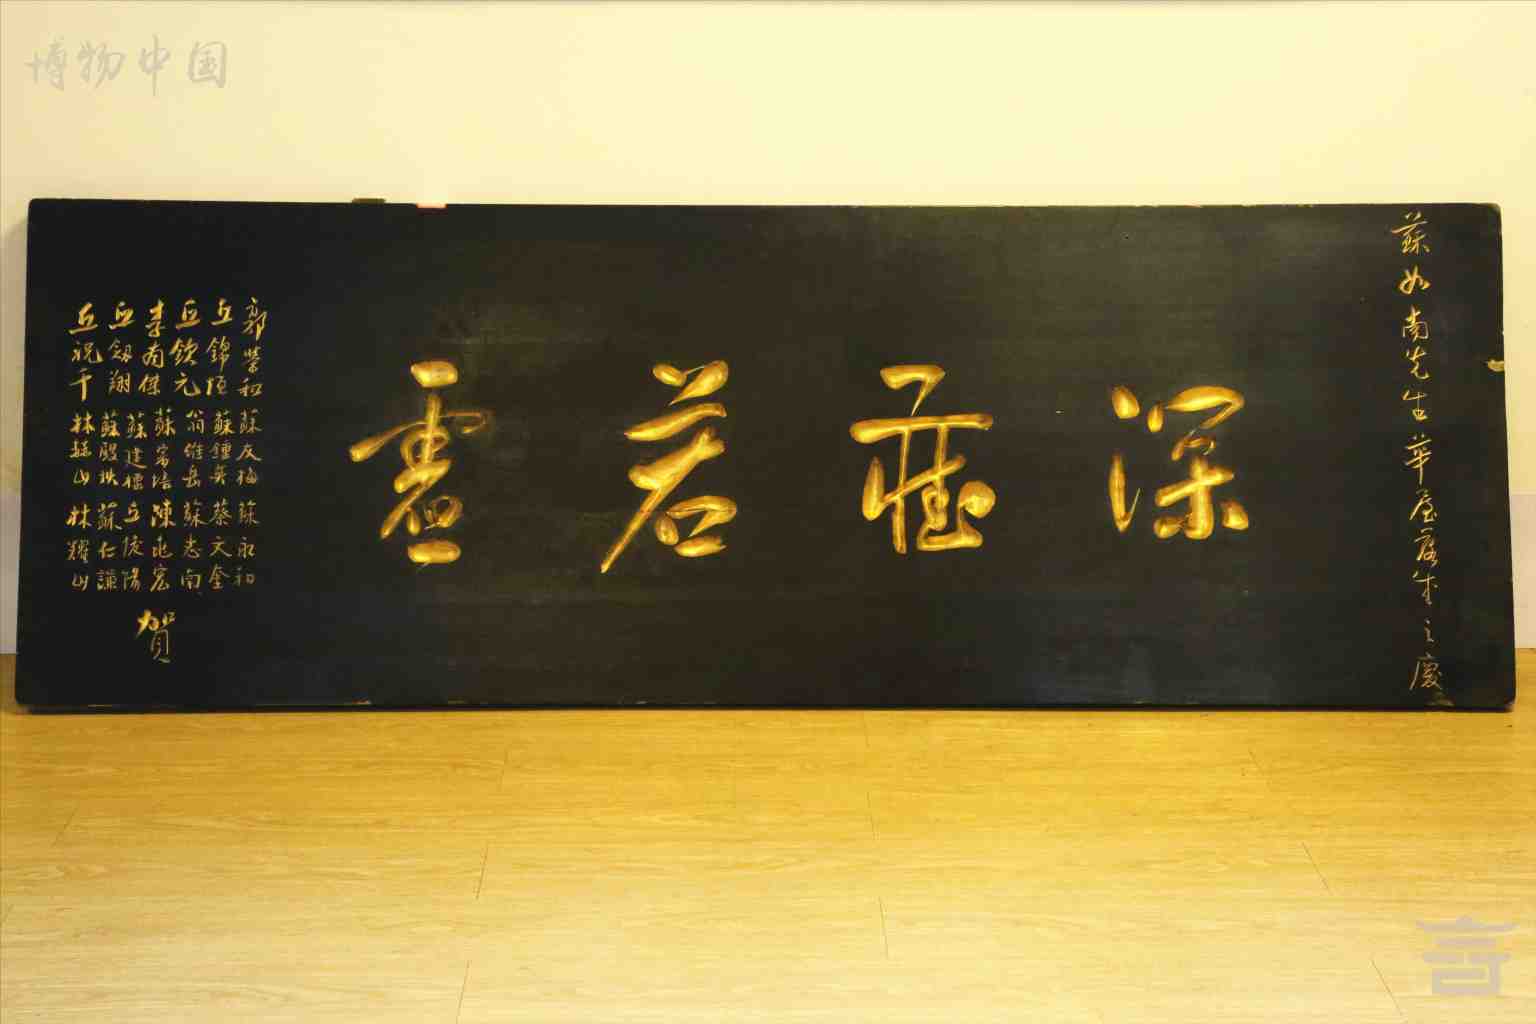 博物中国
蘇如南先生華屋落成之慶
深藏若虛
郭榮和 蘇友梅 蘇永和
丘錦恒 蘇鍾英 蔡文奎
丘欽元 翁維岳 蘇志南
李傑 蘇培 陳宏
丘劔翔 蘇建標 丘陽
蘇殿 蘇仁謙
丘祝千 林山 林耀山
賀